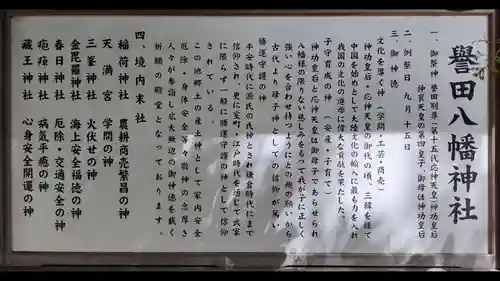 譽田八幡神社
一、御祭神 譽田別尊(第十五代応神天皇)神功皇后
仲哀天皇の第四皇子、御母は神功皇后
二、例祭日 九月十五日
三、御神徳
文化を導く神(学問・工芸・商売)
神功皇后・応神天皇の御代の頃、三韓を経て
中国を始めとして大陸文化の輸入に最も力を入れ
我国の文化の進歩に偉大な貢献を果たした。
子守育成の神(安産・子育て)
神功皇后と応神天皇は御母子であらせられ
八幡様の限りない慈しみをもって我が子に正しく
強い心を合わせ持つようにとの親の願いから
古代より母子神としての信仰が篤い
勝運守護の神
平安時代に源氏の氏神とされ鎌倉時代にまで
信仰され、更に室町・江戸時代を通じて武家
に限らず一般に勝運守護の神として信仰
されている
この他郷土の産土神として家内安全
厄除・身体安全等々敬神の念厚き
人々が参詣し広大無辺の御神徳を戴く
祈願の殿堂となっております。
四、境内末社
稲荷神社 農耕商売繁昌の神
天満宮 学問の神
三峯神社 火伏せの神
金毘羅神社 海上安全福徳の神
春日神社 厄除・交通安全の神
疱瘡神社 病気平癒の神
蔵王神社 心身安全開運の神